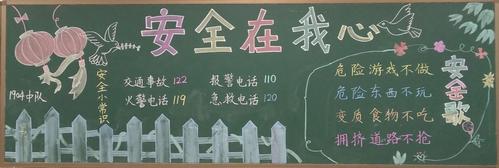 安全在我心
1904中队
安全小常识
交通事故 122
报警电话 110
火警电话 119
急救电话 120
安全歌
危险游戏不做
危险东西不玩
变质食物不吃
拥挤道路不抢